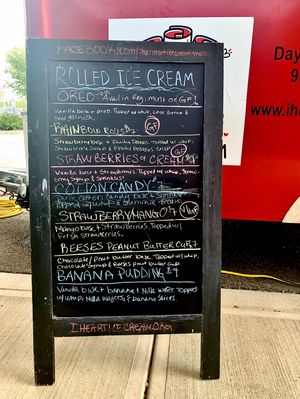 FACEBOOK.com/ihearticecreamtruck
ROLLED ICE CREAM
OREO Avail in Reg, mint or GF!
Vanilla base + oreo. Topped w/ whip,
Oreo Garnish.
RAINBOW ROLLS GF
Strawberry base + Fruity Pebbles. Topped w/ whip,
Strawberry Syrup & Fruity Pebbles
STRAWBERRIES & CREAM GF
Vanilla base + Strawberries. Topped w/ whip,
Syrup & Sprinkles!
COTTON CANDY
Topped w/ whip &
STRAWBERRY MANGO
Mango base + Strawberries. Topped w/
Fresh Strawberries.
REESES PEANUT BUTTER CUP
Chocolate/Pnut butter base. Topped w/ whip,
chocolate syrup & Reeses pnut butter cup.
BANANA PUDDING
Vanilla base + banana + Nilla wafer. Topped
w/ whip, Nilla Wafers, & banana slices.
IHEARTICECREAM.COM
Day
9
www.ihe